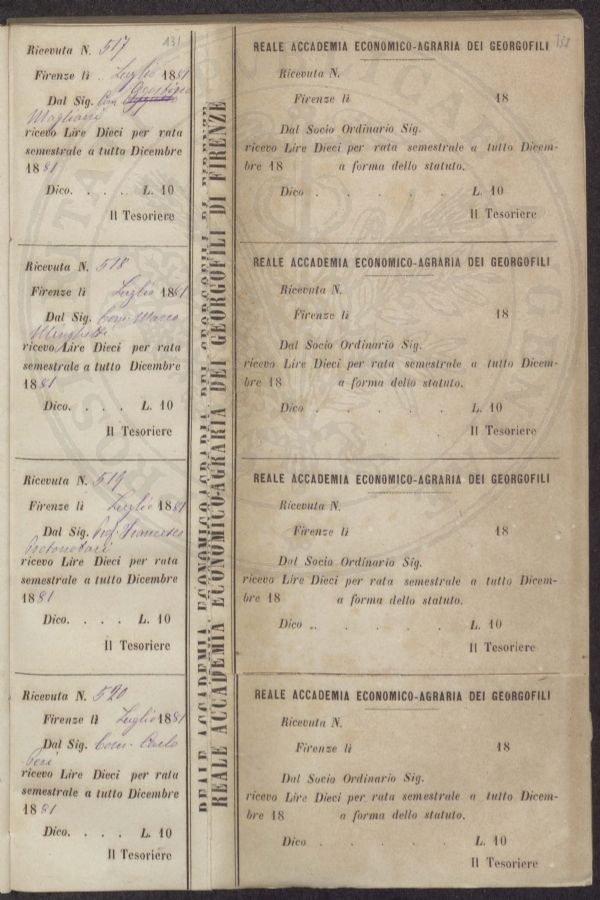 131
Ricevuta N. 517
Firenze li Luglio 1881
Dal Sig. Com
Magliani
ricevo Lire Dieci per rata
semestrale a tutto Dicembre
1881
Dico. . . . L. 10
Il Tesoriere
Ricevuta N. 518
Firenze li Luglio 1881
Dal Sig. Com. Marco
Minghetti
ricevo Lire Dieci per rata
semestrale a tutto Dicembre
1881
Dico. . . . L. 10
Il Tesoriere
Ricevuta N. 519
Firenze li Luglio 1881
Dal Sig. Prof. Francesco
Protonotari
ricevo Lire Dieci per rata
semestrale a tutto Dicembre
1881
Dico. . . . L. 10
Il Tesoriere
Ricevuta N. 520
Firenze li Luglio 1881
Dal Sig. Com. Carlo
Peri
ricevo Lire Dieci per rata
semestrale a tutto Dicembre
1881
Dico. . . . L. 10
Il Tesoriere
REALE ACCADEMIA ECONOMICO-AGRARIA DEI GEORGOFILI DI FIRENZE
REALE ACCADEMIA ECONOMICO-AGRARIA DEI GEORGOFILI DI FIRENZE
REALE ACCADEMIA ECONOMICO-AGRARIA DEI GEORGOFILI
Ricevuta N.
Firenze li 18
Dal Socio Ordinario Sig.
ricevo Lire Dieci per rata semestrale a tutto Dicem-
bre 18 a forma dello statuto.
Dico . . . . L. 10
Il Tesoriere
REALE ACCADEMIA ECONOMICO-AGRARIA DEI GEORGOFILI
Ricevuta N.
Firenze li 18
Dal Socio Ordinario Sig.
ricevo Lire Dieci per rata semestrale a tutto Dicem-
bre 18 a forma dello statuto.
Dico . . . . L. 10
Il Tesoriere
REALE ACCADEMIA ECONOMICO-AGRARIA DEI GEORGOFILI
Ricevuta N.
Firenze li 18
Dal Socio Ordinario Sig.
ricevo Lire Dieci per rata semestrale a tutto Dicem-
bre 18 a forma dello statuto.
Dico . . . . L. 10
Il Tesoriere
REALE ACCADEMIA ECONOMICO-AGRARIA DEI GEORGOFILI
Ricevuta N.
Firenze li 18
Dal Socio Ordinario Sig.
ricevo Lire Dieci per rata semestrale a tutto Dicem-
bre 18 a forma dello statuto.
Dico . . . . L. 10
Il Tesoriere